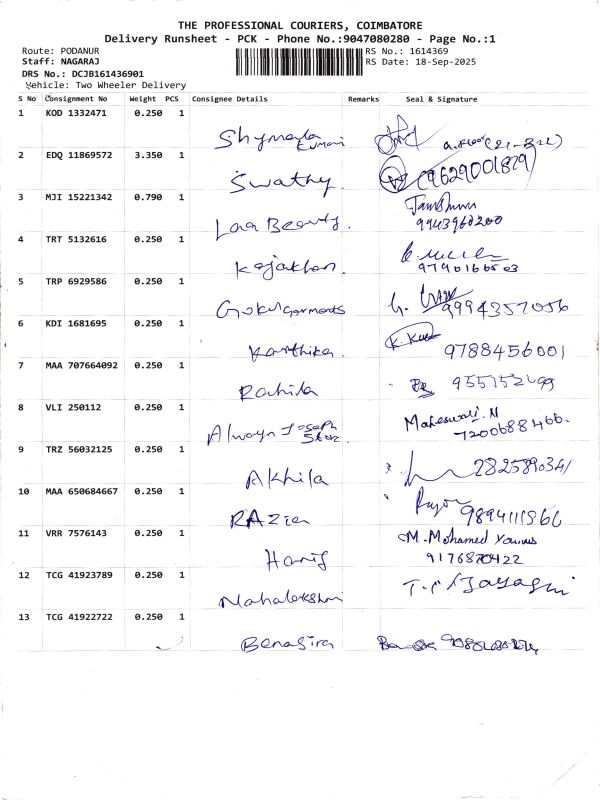 THE PROFESSIONAL COURIERS, COIMBATORE
Delivery Runsheet - PCK - Phone No.:9047080280 - Page No.:1
Route: PODANUR
RS No.: 1614369
Staff: NAGARAJ
RS Date: 18-Sep-2025
DRS No.: DCJB161436901
Vehicle: Two Wheeler Delivery
S No Consignment No Weight PCS Consignee Details Remarks Seal & Signature
1 KOD 1332471 0.250 1
Shymala Kumari
2 EDQ 11869572 3.350 1
Swathy (9629001879)
3 MJI 15221342 0.790 1
Laa Beauty. 9943960200
4 TRT 5132616 0.250 1
Kajakhan.
5 TRP 6929586 0.250 1
Gokul garments 9994357056
6 KDI 1681695 0.250 1
Karthika. 9788456001
7 MAA 707664092 0.250 1
Rahila
8 VLI 250112 0.250 1
Alwayn Joseph Maheswari. N
7200688466.
9 TRZ 56032125 0.250 1
Akhila 2825890341
10 MAA 650684667 0.250 1
RAZiea
11 VRR 7576143 0.250 1
M. Mohamed Younus
Hanif 9176870422
12 TCG 41923789 0.250 1
Mahalakshmi
13 TCG 41922722 0.250 1
Benasira